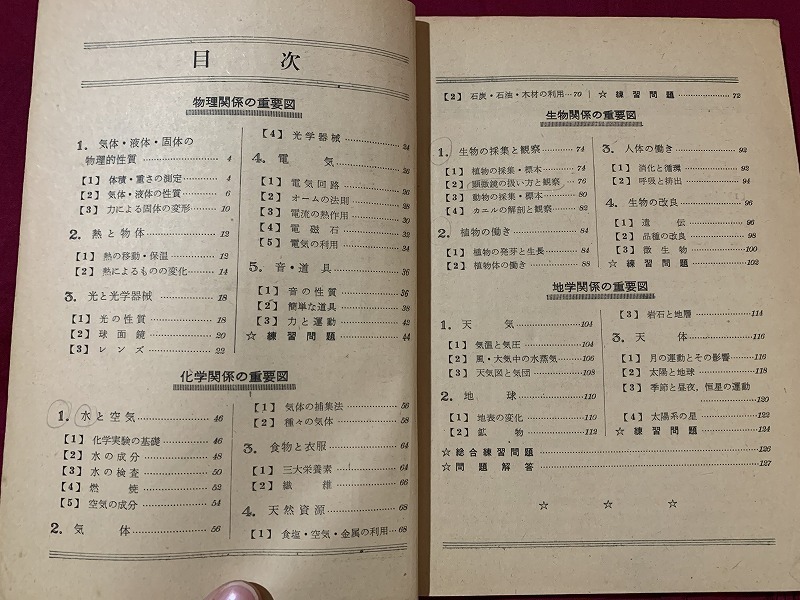 目次
物理関係の重要図
1. 気体・液体・固体の
物理的性質 4
【1】 体積・重さの測定 4
【2】 気体・液体の性質 6
【3】 力による固体の変形 10
2. 熱と物体 12
【1】 熱の移動・保温 12
【2】 熱によるものの変化 14
3. 光と光学器械 18
【1】 光の性質 18
【2】 球面鏡 20
【3】 レンズ 22
【4】 光学器械 24
4. 電気 26
【1】 電気回路 26
【2】 オームの法則 28
【3】 電流の熱作用 30
【4】 電磁石 32
【5】 電気の利用 34
5. 音・道具 36
【1】 音の性質 36
【2】 簡単な道具 38
【3】 力と運動 42
☆ 練習問題 44
化学関係の重要図
1. 水と空気 46
【1】 化学実験の基礎 46
【2】 水の成分 48
【3】 水の検査 50
【4】 燃焼 52
【5】 空気の成分 54
2. 気体 56
【1】 気体の捕集法 56
【2】 種々の気体 58
3. 食物と衣服 64
【1】 三大栄養素 64
【2】 繊維 66
4. 天然資源 68
【1】 食塩・空気・金属の利用 68
【2】 石炭・石油・木材の利用 70
☆ 練習問題 72
生物関係の重要図
1. 生物の採集と観察 74
【1】 植物の採集・標本 74
【2】 顕微鏡の扱い方と観察 76
【3】 動物の採集・標本 80
【4】 カエルの解剖と観察 82
2. 植物の働き 84
【1】 植物の発芽と生長 84
【2】 植物体の働き 88
3. 人体の働き 92
【1】 消化と循環 92
【2】 呼吸と排出 94
4. 生物の改良 96
【1】 遺伝 96
【2】 品種の改良 98
【3】 微生物 100
☆ 練習問題 102
地学関係の重要図
1. 天気 104
【1】 気温と気圧 104
【2】 風・大気中の水蒸気 106
【3】 天気図と気団 108
2. 地球 110
【1】 地表の変化 110
【2】 鉱物 112
【3】 岩石と地層 114
3. 天体 116
【1】 月の運動とその影響 116
【2】 太陽と地球 118
【3】 季節と昼夜，恒星の運動
120
【4】 太陽系の星 122
☆ 練習問題 124
☆ 総合練習問題 126
☆ 問題解答 127
☆ ☆ ☆